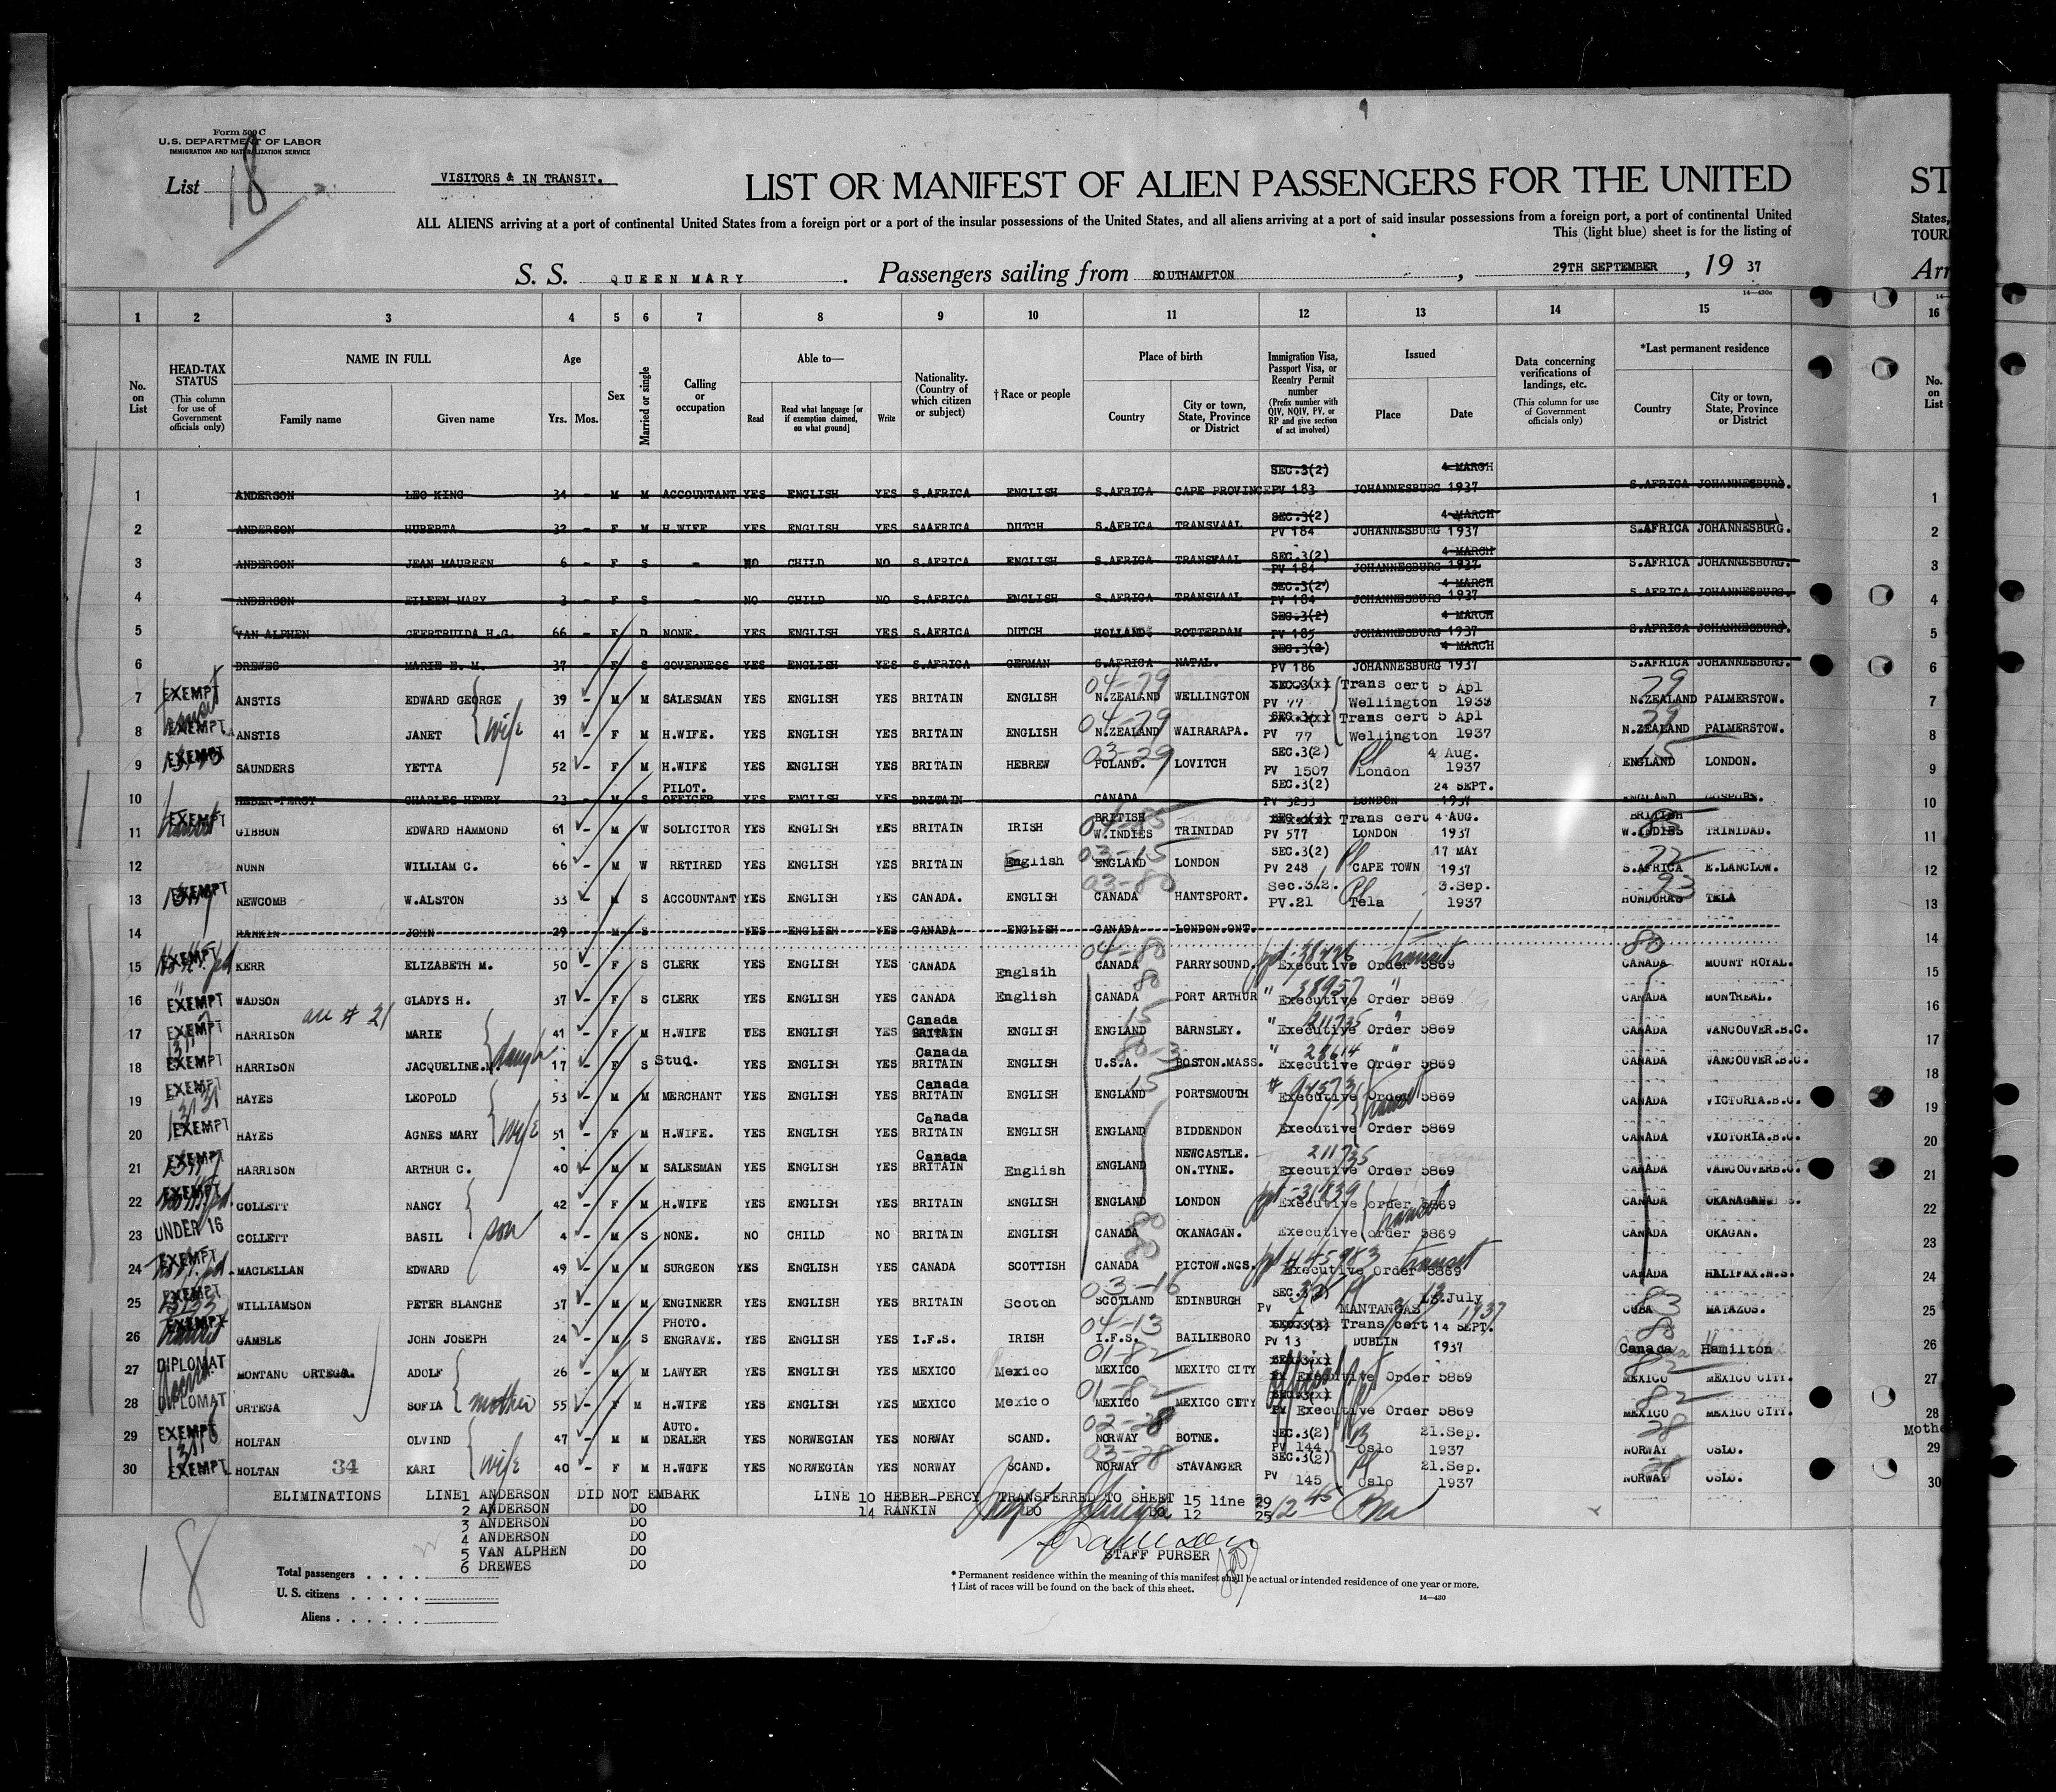 Form 500 C
U.S. DEPARTMENT OF LABOR
IMMIGRATION AND NATURALIZATION SERVICE
List 18
VISITORS & IN TRANSIT.
LIST OR MANIFEST OF ALIEN PASSENGERS FOR THE UNITED ST
ALL ALIENS arriving at a port of continental United States from a foreign port or a port of the insular possessions of the United States, and all aliens arriving at a port of said insular possessions from a foreign port, a port of continental United States,
This (light blue) sheet is for the listing of TOUR
S. S. QUEEN MARY. Passengers sailing from SOUTHAMPTON, 29TH SEPTEMBER, 19 37 Arr
14—430c
1 2 3 4 5 6 7 8 9 10 11 12 13 14 15 16
No. on List
HEAD-TAX STATUS (This column for use of Government officials only)
NAME IN FULL Family name Given name
Age Yrs. Mos.
Sex
Married or single
Calling or occupation
Able to— Read Read what language [or if exemption claimed, on what ground] Write
Nationality. (Country of which citizen or subject)
† Race or people
Place of birth Country City or town, State, Province or District
Immigration Visa, Passport Visa, or Reentry Permit number (Prefix number with QIV, NQIV, PV, or RP and give section of act involved)
Issued Place Date
Data concerning verifications of landings, etc. (This column for use of Government officials only)
*Last permanent residence Country City or town, State, Province or District
No. on List
1 ANDERSON LEO KING 34 - M M ACCOUNTANT YES ENGLISH YES S.AFRICA ENGLISH S.AFRICA CAPE PROVINCE SEC.3(2) PV 183 JOHANNESBURG 4 MARCH 1937 S.AFRICA JOHANNESBURG. 1
2 ANDERSON HUBERTA 32 - F M H.WIFE YES ENGLISH YES SAAFRICA DUTCH S.AFRICA TRANSVAAL SEC.3(2) PV 184 JOHANNESBURG 4 MARCH 1937 S.AFRICA JOHANNESBURG. 2
3 ANDERSON JEAN MAUREEN 6 - F S - NO CHILD NO S.AFRICA ENGLISH S.AFRICA TRANSVAAL SEC.3(2) PV 184 JOHANNESBURG 4 MARCH 1937 S.AFRICA JOHANNESBURG. 3
4 ANDERSON EILEEN MARY 3 - F S - NO CHILD NO S.AFRICA ENGLISH S.AFRICA TRANSVAAL SEC.3(2) PV 184 JOHANNESBURG 4 MARCH 1937 S.AFRICA JOHANNESBURG. 4
5 VAN ALPHEN GEERTRUIDA H.G. 66 - F D NONE. YES ENGLISH YES S.AFRICA DUTCH HOLLAND ROTTERDAM SEC.3(2) PV 185 JOHANNESBURG 4 MARCH 1937 S.AFRICA JOHANNESBURG. 5
6 DREWES MARIE E. M. 37 - F S GOVERNESS YES ENGLISH YES S.AFRICA GERMAN S.AFRICA NATAL. SEC.3(2) PV 186 JOHANNESBURG 4 MARCH 1937 S.AFRICA JOHANNESBURG. 6
7 EXEMPT transit ANSTIS EDWARD GEORGE 39 - M M SALESMAN YES ENGLISH YES BRITAIN ENGLISH 04-29 N.ZEALAND WELLINGTON PV 77 Trans cert Wellington 5 Apl 1933 29 N.ZEALAND PALMERSTOW. 7
8 EXEMPT ANSTIS JANET wife 41 - F M H.WIFE. YES ENGLISH YES BRITAIN ENGLISH 04-29 N.ZEALAND WAIRARAPA. PV 77 Trans cert Wellington 5 Apl 1937 29 N.ZEALAND PALMERSTOW. 8
9 EXEMPT SAUNDERS YETTA 52 - F M H.WIFE YES ENGLISH YES BRITAIN HEBREW 03-29 POLAND. LOVITCH SEC.3(2) PV 1507 Pl London 4 Aug. 1937 15 ENGLAND LONDON. 9
10 HEBER-PERCY CHARLES HENRY 23 - M S PILOT. OFFICER YES ENGLISH YES BRITAIN CANADA SEC.3(2) PV 3233 LONDON 24 SEPT. 1937 ENGLAND GOSPORT. 10
11 EXEMPT transit GIBBON EDWARD HAMMOND 61 - M W SOLICITOR YES ENGLISH YES BRITAIN IRISH 04-85 BRITISH W.INDIES TRINIDAD PV 577 Trans cert LONDON 4 AUG. 1937 85 BRITISH W.INDIES TRINIDAD. 11
12 NUNN WILLIAM C. 66 - M W RETIRED YES ENGLISH YES BRITAIN English 03-15 ENGLAND LONDON SEC.3(2) PV 248 Pl CAPE TOWN 17 MAY 1937 22 S.AFRICA E.LANGLOW. 12
13 EXEMPT NEWCOMB W.ALSTON 33 - M S ACCOUNTANT YES ENGLISH YES CANADA. ENGLISH 03-80 CANADA HANTSPORT. Sec.3.2. PV.21 Pl Tela 3.Sep. 1937 93 HONDURAS TELA 13
14 RANKIN JOHN 29 - M S YES ENGLISH YES CANADA ENGLISH CANADA LONDON.ONT. 14
15 EXEMPT KERR ELIZABETH M. 50 - F S CLERK YES ENGLISH YES CANADA Englsih 04-80 CANADA PARRYSOUND. ppt-38426 transit Executive Order 5869 80 CANADA MOUNT ROYAL. 15
16 " EXEMPT WADSON GLADYS H. 37 - F S CLERK YES ENGLISH YES CANADA English 80 CANADA PORT ARTHUR " 38957 " Executive Order 5869 CANADA MONTREAL. 16
17 EXEMPT HARRISON MARIE 41 - F M H.WIFE YES ENGLISH YES Canada BRITAIN ENGLISH 15 ENGLAND BARNSLEY. " 211735 " Executive Order 5869 CANADA VANCOUVER.B.C. 17
18 EXEMPT HARRISON JACQUELINE.M. 17 - F S Stud. YES ENGLISH YES Canada BRITAIN ENGLISH 80-3 U.S.A. BOSTON.MASS. " 28614 " Executive Order 5869 CANADA VANCOUVER.B.C. 18
19 EXEMPT HAYES LEOPOLD 53 - M M MERCHANT YES ENGLISH YES Canada BRITAIN ENGLISH 15 ENGLAND PORTSMOUTH # 94573 transit Executive Order 5869 CANADA VICTORIA.B.C. 19
20 EXEMPT HAYES AGNES MARY wife 51 - F M H.WIFE. YES ENGLISH YES Canada BRITAIN ENGLISH ENGLAND BIDDENDON Executive Order 5869 CANADA VIDTORIA.B.C. 20
21 EXEMPT HARRISON ARTHUR C. 40 - M M SALESMAN YES ENGLISH YES Canada BRITAIN English ENGLAND NEWCASTLE. ON.TYNE. 211735 Executive Order 5869 CANADA VANCOUVERB.C. 21
22 EXEMPT COLLETT NANCY 42 - F M H.WIFE YES ENGLISH YES BRITAIN ENGLISH ENGLAND LONDON ppt-31839 transit Executive Order 5869 CANADA OKANAGAN. 22
23 UNDER 16 COLLETT BASIL son 4 - M S NONE. NO CHILD NO BRITAIN ENGLISH 80 CANADA OKANAGAN. Executive order 5869 CANADA OKAGAN. 23
24 EXEMPT MACLELLAN EDWARD 49 - M M SURGEON YES ENGLISH YES CANADA SCOTTISH 80 CANADA PICTOW.NCS. transit Executive Order 5869 CANADA HALIFAX.N.S. 24
25 EXEMPT WILLIAMSON PETER BLANCHE 37 - M M ENGINEER YES ENGLISH YES BRITAIN Scotch 03-16 SCOTLAND EDINBURGH SEC. PV 1 MANTANGAS July 1937 83 CUBA MATAZOS. 25
26 EXEMPT transit GAMBLE JOHN JOSEPH 24 - M S PHOTO. ENGRAVE. YES ENGLISH YES I.F.S. IRISH 04-13 I.F.S. BAILIEBORO PV 13 Trans cert DUBLIN 14 SEPT. 1937 80 Canada Hamilton 26
27 DIPLOMAT MONTANO ORTEGA. ADOLF 26 - M M LAWYER YES ENGLISH YES MEXICO Mexico 01-82 MEXICO MEXITO CITY Executive Order 5869 82 MEXICO MEXICO CITY. 27
28 DIPLOMAT ORTEGA SOFIA mother 55 - F M H.WIFE YES ENGLISH YES MEXICO Mexico 01-82 MEXICO MEXICO CITY PV Executive Order 5869 82 MEXICO MEXICO CITY. 28
29 EXEMPT HOLTAN OLVIND 47 - M M AUTO. DEALER YES NORWEGIAN YES NORWAY SCAND. 02-28 NORWAY BOTNE. SEC.3(2) PV 144 Oslo 21.Sep. 1937 28 NORWAY OSLO. Mothe 29
30 EXEMPT HOLTAN 34 KARI wife 40 - F M H.WOFE YES NORWEGIAN YES NORWAY SCAND. 03-28 NORWAY STAVANGER SEC.3(2) PV 145 Pl Oslo 21.Sep. 1937 28 NORWAY OSLO. 30
ELIMINATIONS LINE1 ANDERSON DID NOT EMBARK LINE 10 HEBER-PERCY TRANSFERRED TO SHEET 15 line 29
2 ANDERSON DO 14 RANKIN DO DO 12 25
3 ANDERSON DO
4 ANDERSON DO
5 VAN ALPHEN DO
6 DREWES DO
STAFF PURSER
18
Total passengers
U. S. citizens
Aliens
* Permanent residence within the meaning of this manifest shall be actual or intended residence of one year or more.
† List of races will be found on the back of this sheet.
14—430